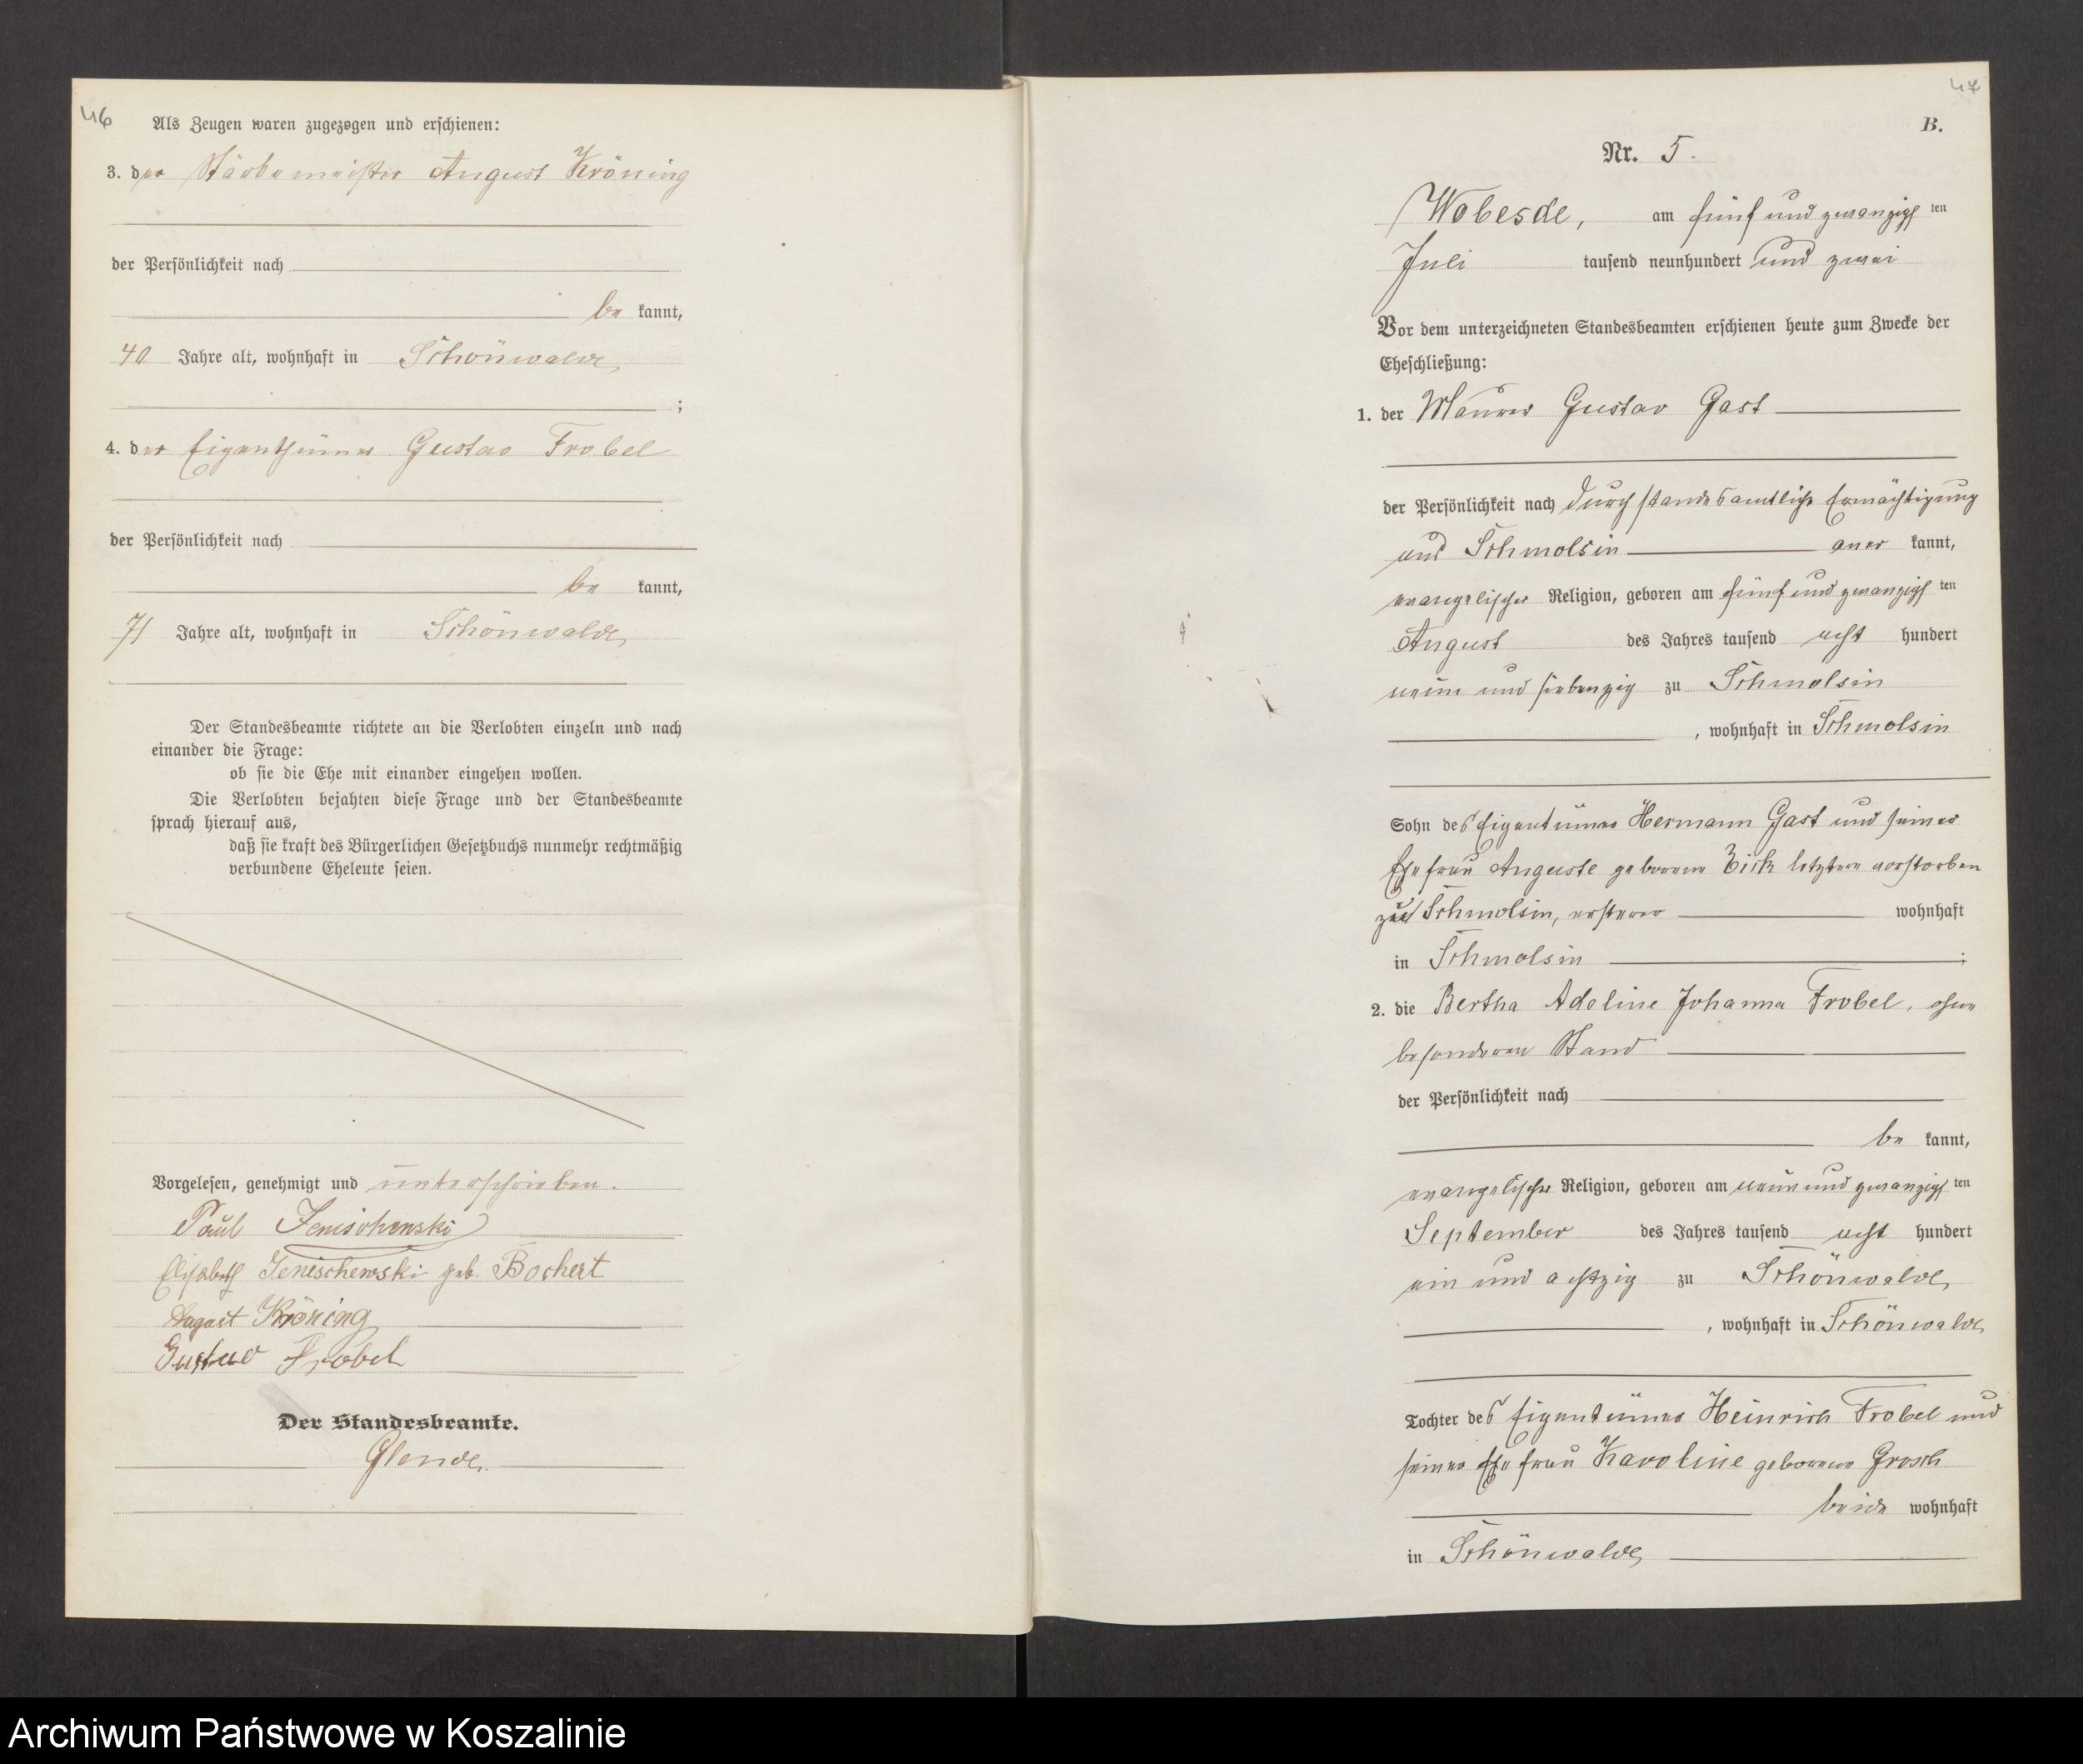 46
Als Zeugen waren zugezogen und erschienen:
3. der Stärkemeister August Kröning
der Persönlichkeit nach
be kannt,
40 Jahre alt, wohnhaft in Schönwalde
;
4. der Eigenthümer Gustav Frobel
der Persönlichkeit nach
be kannt,
71 Jahre alt, wohnhaft in Schönwalde,
Der Standesbeamte richtete an die Verlobten einzeln und nach
einander die Frage:
ob sie die Ehe mit einander eingehen wollen.
Die Verlobten bejahten diese Frage und der Standesbeamte
sprach hierauf aus,
daß sie kraft des Bürgerlichen Gesetzbuchs nunmehr rechtmäßig
verbundene Eheleute seien.
Vorgelesen, genehmigt und unterschrieben.
Paul Jenischewski
Elisabeth Jenischewski geb. Bochert
August Kröning
Gustav Frobel
Der Standesbeamte.
Glende.
47
B.
Nr. 5.
Wobesde, am fünf und zwanzigs ten
Juli tausend neunhundert und zwei
Vor dem unterzeichneten Standesbeamten erschienen heute zum Zwecke der
Eheschließung:
1. der Maurer Gustav Gast
der Persönlichkeit nach durch standesamtliche Ermächtigung
aus Schmolsin aner kannt,
evangelischer Religion, geboren am fünf und zwanzigs ten
August des Jahres tausend acht hundert
neun und siebenzig zu Schmolsin
, wohnhaft in Schmolsin
Sohn des Eigentümer Hermann Gast und seiner
Ehefrau Auguste geborene letztere verstorben
zu Schmolsin, ersterer wohnhaft
in Schmolsin ;
2. die Bertha Adeline Johanna Frobel, ohne
besonderen Stand
der Persönlichkeit nach
be kannt,
evangelischer Religion, geboren am neun und zwanzigs ten
September des Jahres tausend acht hundert
ein und achtzig zu Schönwalde,
, wohnhaft in Schönwalde
Tochter des Eigentümer Heinrich Frobel und
seiner Ehefrau Karoline geborene Grosch
beide wohnhaft
in Schönwalde,
Archiwum Państwowe w Koszalinie